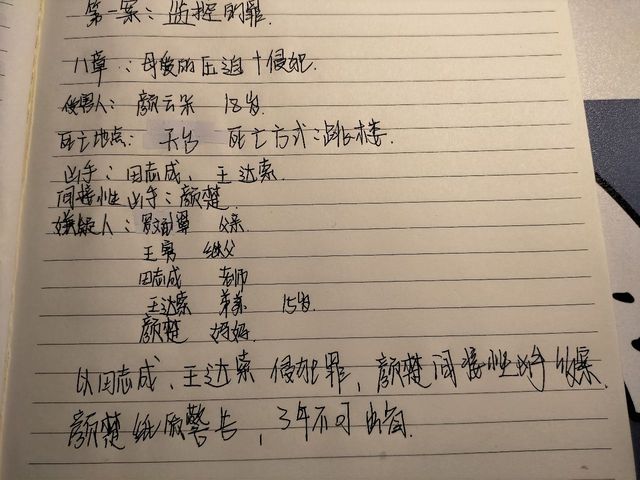 第一案：监控的罪.
八章：母爱的压迫＋侵犯.
被害人：颜云朵 18岁.
死亡地点：天台 死亡方式：跳楼.
凶手：田志成、王达索.
间接性凶手：颜楚.
嫌疑人： 父亲
王勇 继父
田志成 老师
王达索 弟弟 15岁.
颜楚 妈妈.
以田志成、王达索侵犯罪，颜楚间接性凶手 收案.
颜楚 警告，3年不可出省.